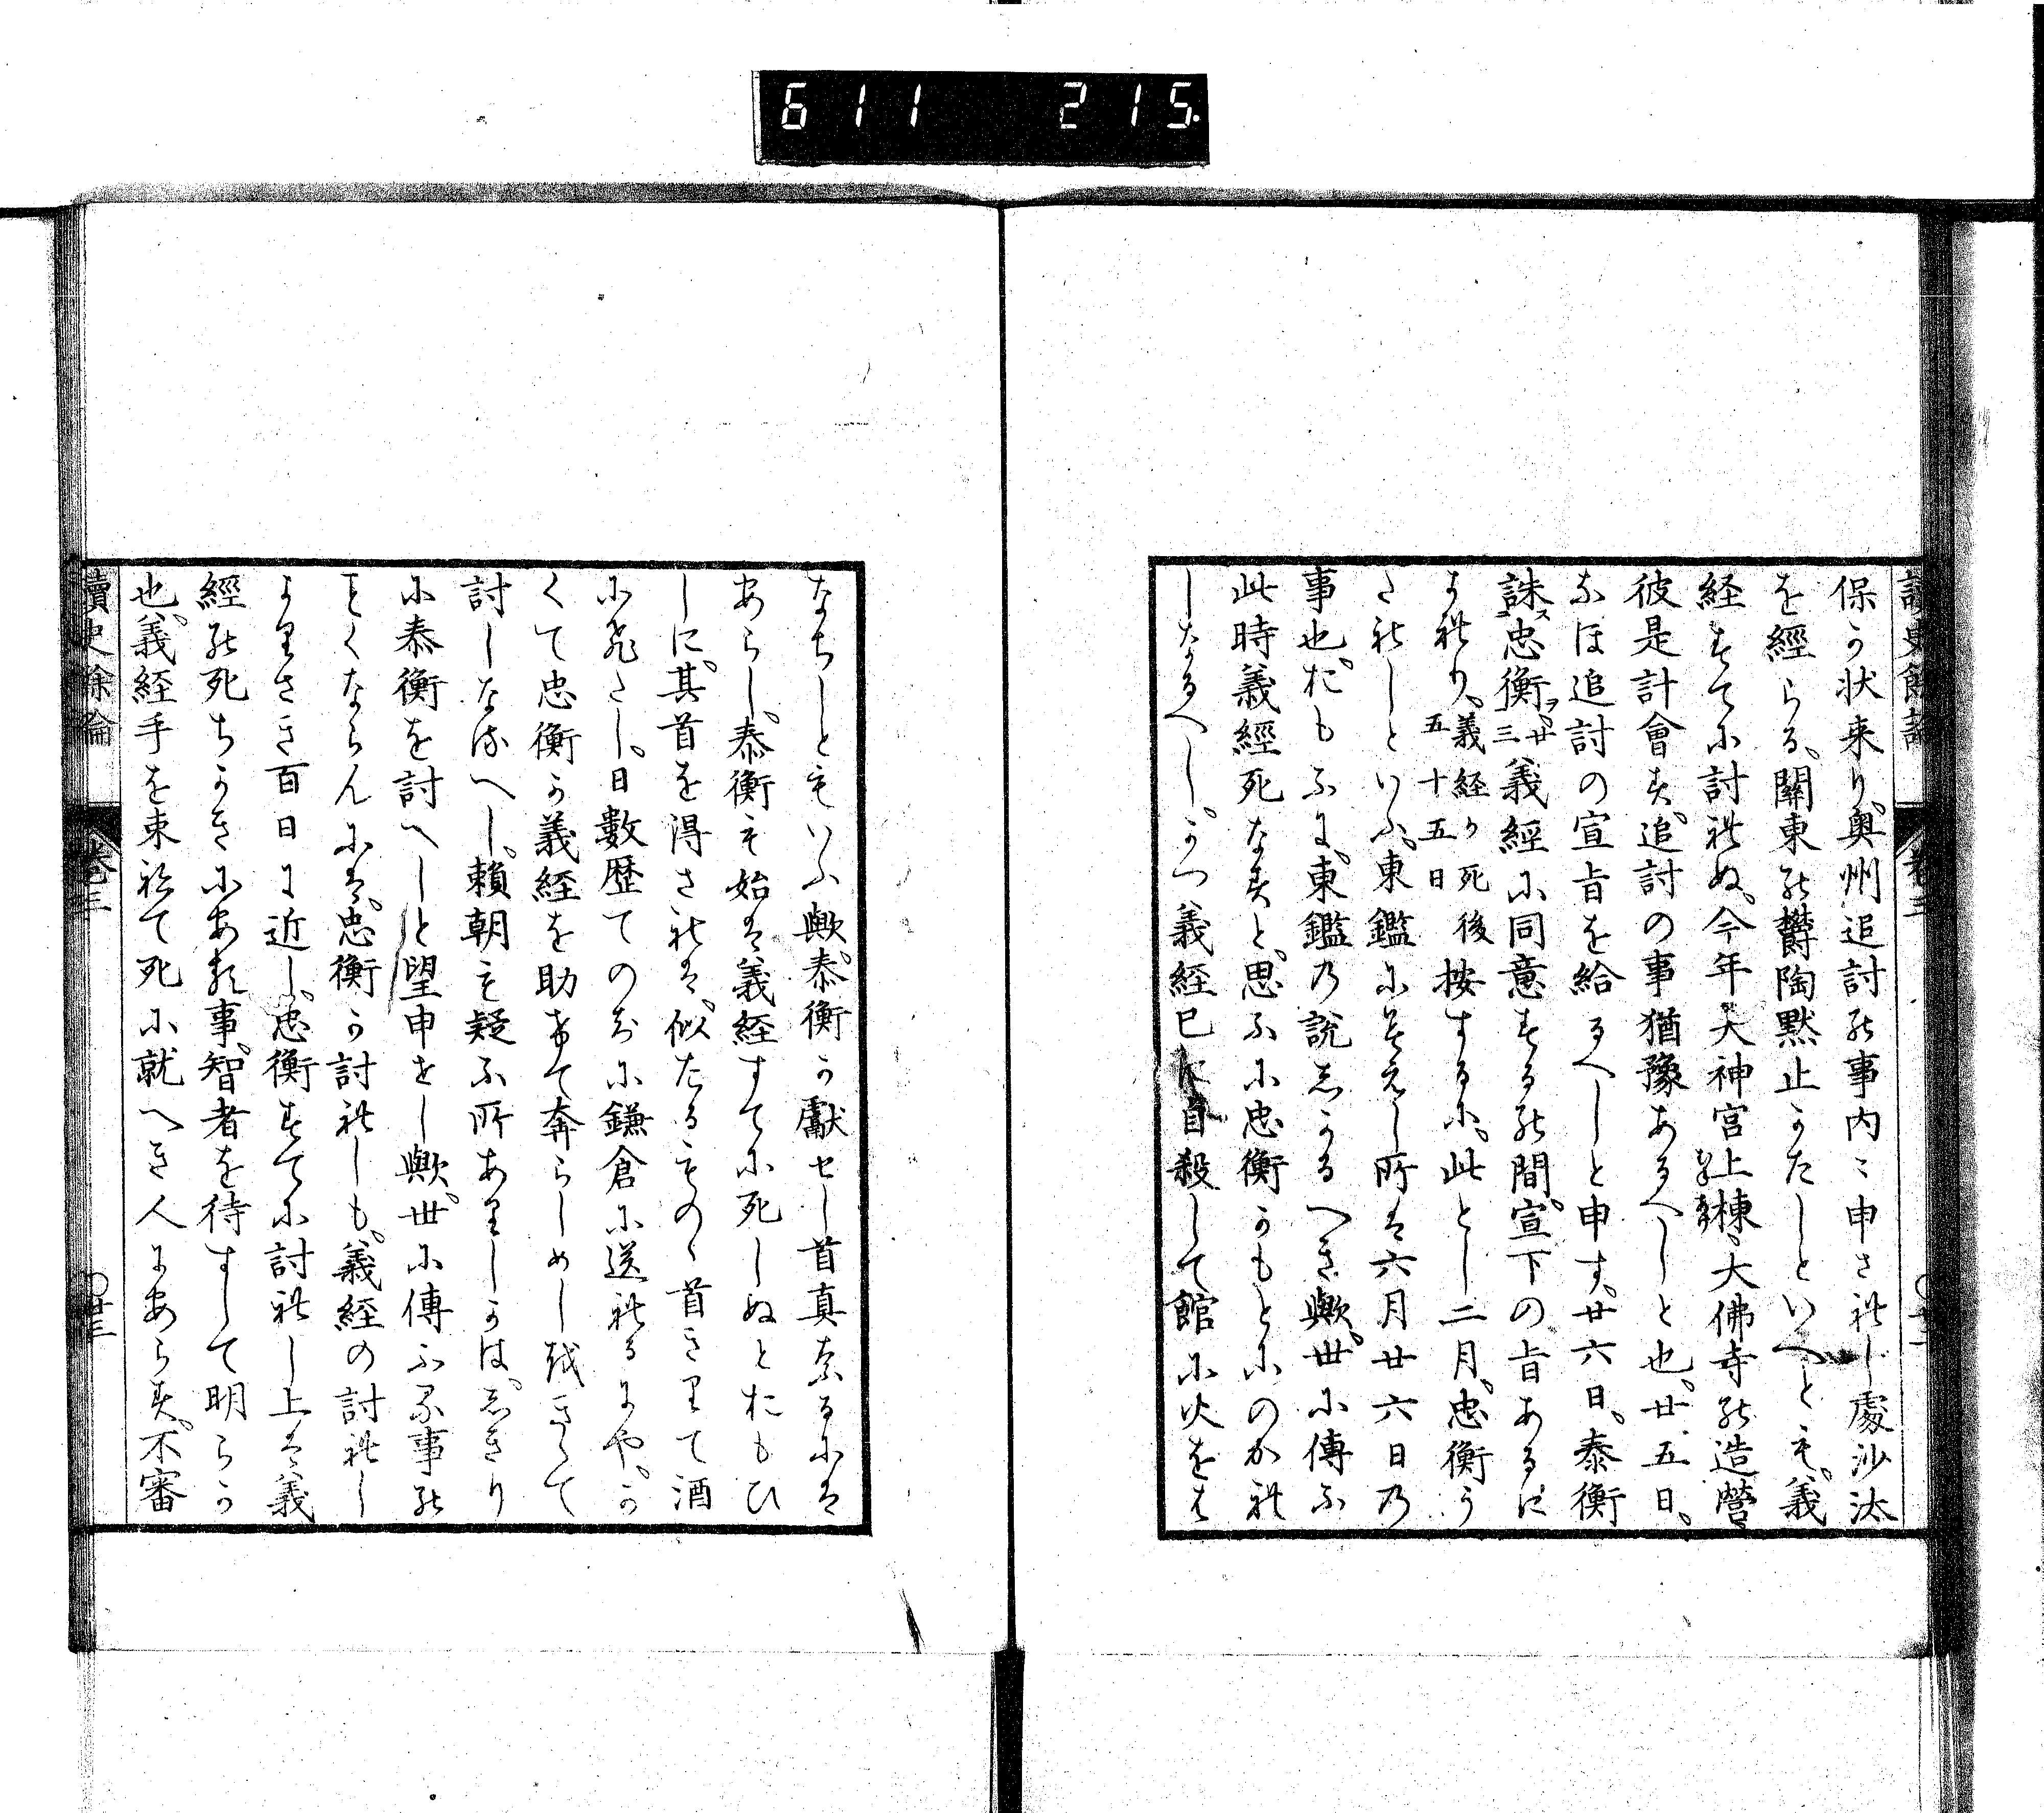 611 215.
讀史餘論 卷三
保か状来り、奥州追討の事内〻申されし處沙汰
を經らる、關東の欝陶黙止かたしといへとも、義
経すてに討れぬ、今年大神宮上棟、大佛寺の造營
彼是計會す、追討の事猶豫あるへしと也、廿五日、
なほ追討の宣旨を給るへしと申す、廿六日、泰衡
誅ス忠衡ヲ、廿三義經に同意する間、宣下の旨あるに
より、義経か死後五十五日按するに、此とし二月、忠衡う
たれしといふ、東鑑に見えし所は六月廿六日乃
事也、おもふに、東鑑乃説しかるへき歟、世に傳ふ
此時義經死なすと、思ふに忠衡かもとにのかれ
しなるへし、かつ義経已に自殺して館に火をは
なちしともいふ歟、泰衡か獻セし首真なるには
あらし、泰衡も始は義経すてに死しぬとおもひ
しに、其首を得されは、似たるものゝ首きりて酒
に飛たし、日數歴てのちに鎌倉に送れるにや、か
くて忠衡か義経を助けて奔らしめしをきゝて
討しなるへし、頼朝も疑ふ所ありしかは、しきり
に泰衡を討へしと望申せし歟、世に傳ふる事の
ことくならんには、忠衡か討れしも、義経の討れし
よりさき百日に近し、忠衡すてに討れし上は義
經の死ちかきにある事、智者を待すして明らか
也、義経手を束ねて死に就へき人にあらす、不審
讀史餘論 卷三 〇廿三